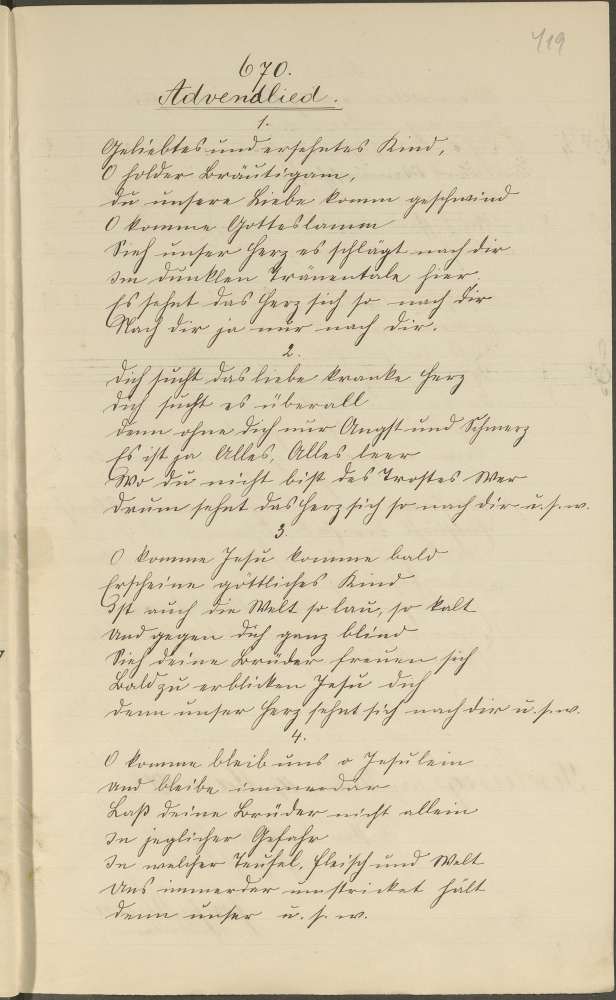 419
670.
Advendlied.
1.
Geliebtes und ersehntes Kind,
O holder Bräutigam,
du unsere Liebe komm geschwind
O komme Gotteslamm
Sieh unser Herz es schlägt nach dir
Im dunklen Tränentale hier.
Es sehnt das Herz sich so nach dir
Nach dir ja nur nach dir.
2.
Dich sucht das liebe kranke Herz
Dich sucht es überall
Denn ohne dich nur Angst und Schmerz
Es ist ja Alles, Alles leer
Wo du nicht bist des Trostes Wer
Drum sehnt das Herz sich so nach dir u. s. w.
3.
O komme Jesu komme bald
Erscheine göttliches Kind
Ist auch die Welt so lau, so kalt
Und gegen dich ganz blind
Sieh deine Brüder freuen sich
Bald zu erblicken Jesu dich
Denn unser Herz sehnt sich nach dir u. s. w.
4.
O komme bleib uns o Jesulein
Und bleibe immerdar
Laß deine Brüder nicht allein
In jeglicher Gefahr
In welcher Teufel, Fleisch und Welt
Uns immerder umstricket hält
Denn unser u. s. w.